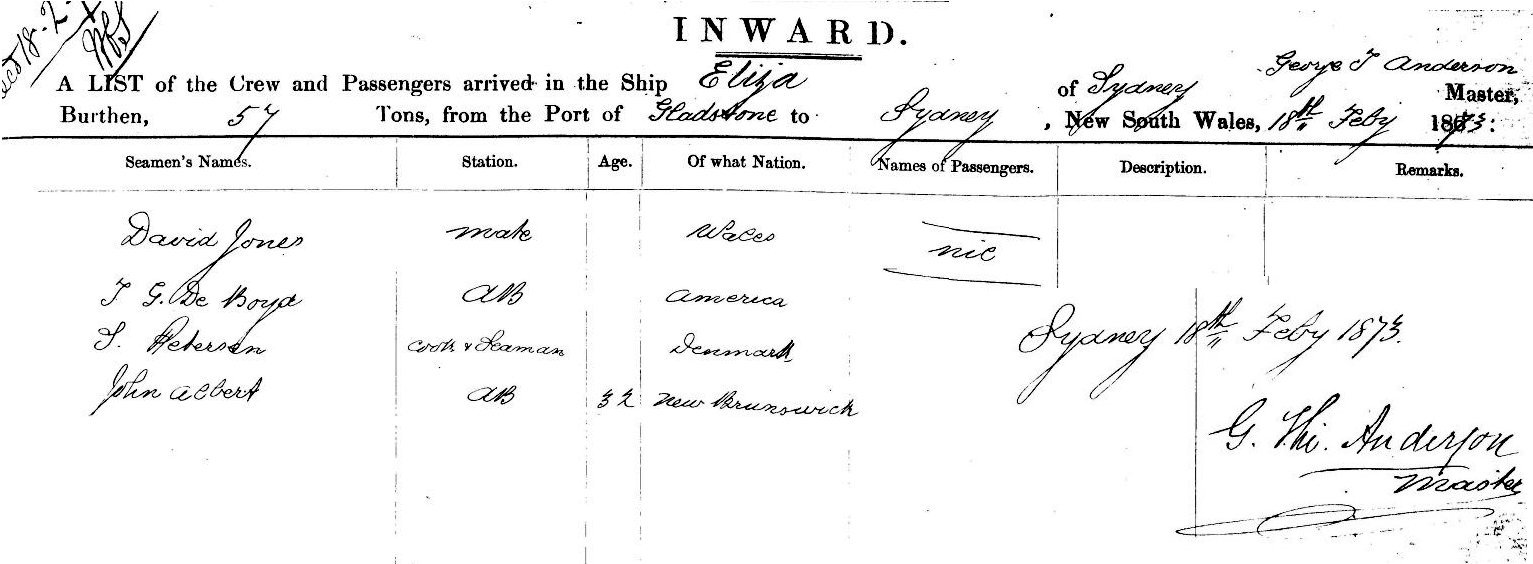 18-2-
INWARD.
George T Anderson
A LIST of the Crew and Passengers arrived in the Ship Eliza of Sydney Master,
Burthen, 57 Tons, from the Port of Gladstone to Sydney, New South Wales, 18th Feby 1873:
Seamen's Names. Station. Age. Of what Nation. Names of Passengers. Description. Remarks.
David Jones mate Wales nil
T G. De Boyd AB America
S. Petersen Cook & Seaman Denmark Sydney 18th Feby 1873.
John Albert AB 32 New Brunswick
G. Anderson
Master